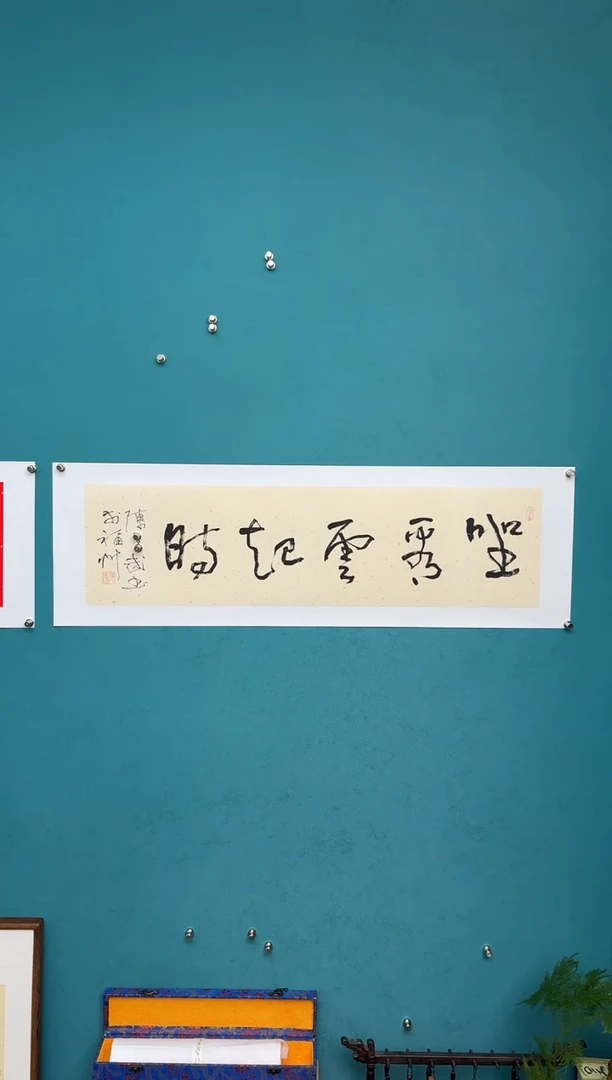 坐看雲起時
陳武書
於福州